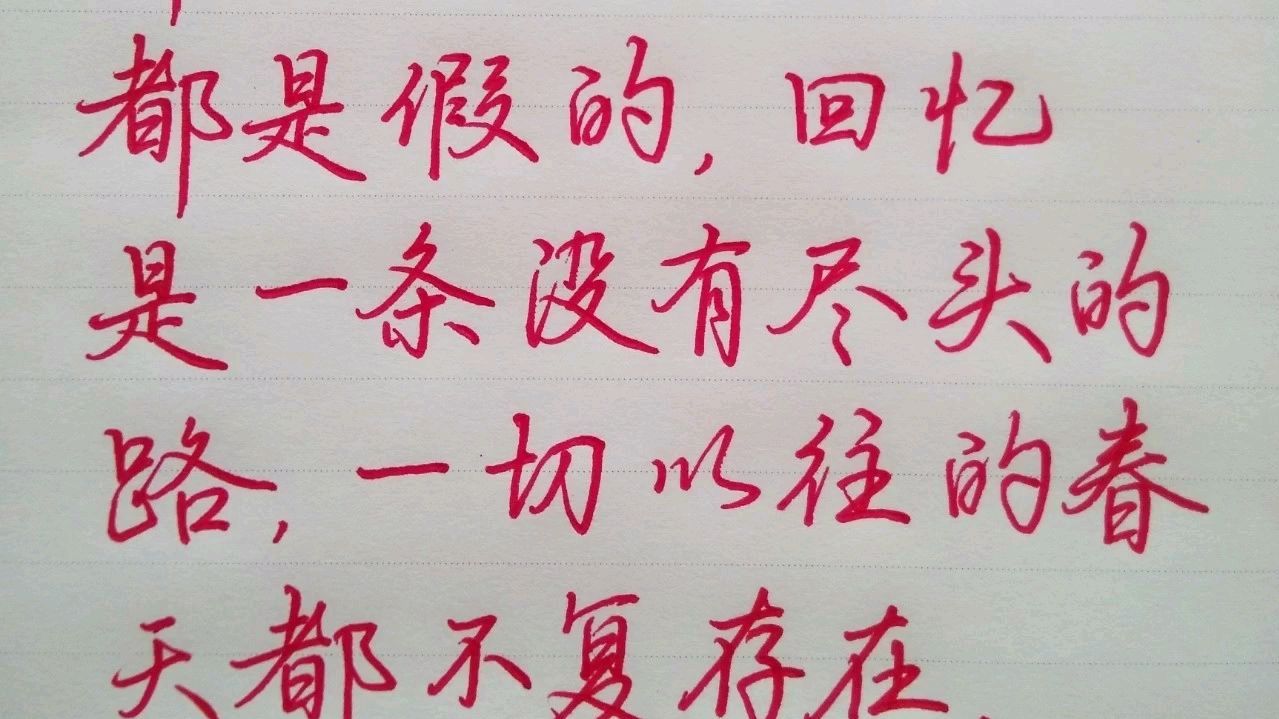 都是假的,回忆
是一条没有尽头的
路,一切以往的春
天都不复存在,